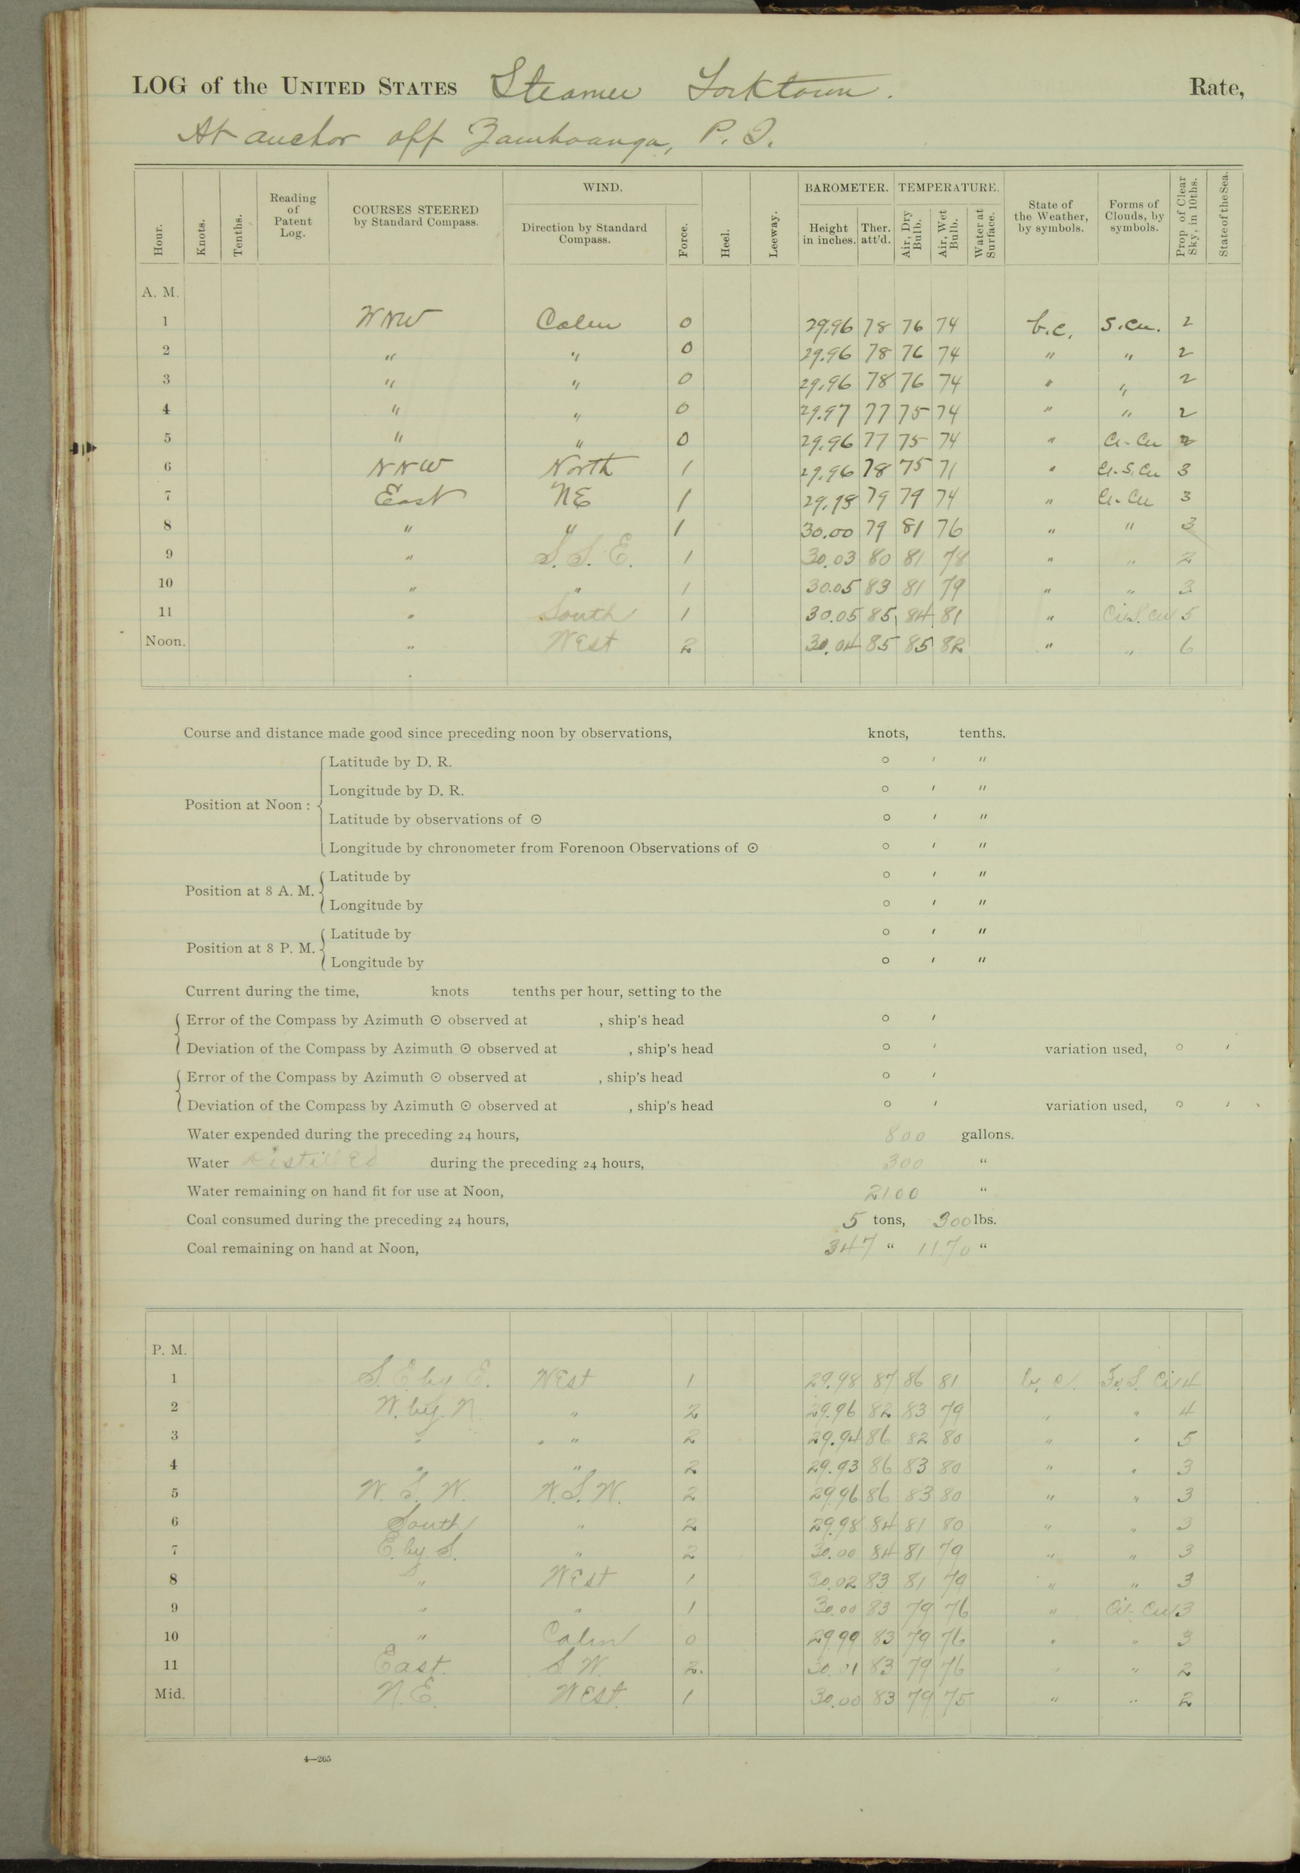 LOG of the UNITED STATES Steamer Yorktown. Rate,
At anchor off Zamboanga, P. I.
Hour. Knots. Tenths. Reading of Patent Log. COURSES STEERED by Standard Compass. WIND. Direction by Standard Compass. Force. Heel. Leeway. BAROMETER. Height in inches. Ther. att'd. TEMPERATURE. Air, Dry Bulb. Air, Wet Bulb. Water at Surface. State of the Weather, by symbols. Forms of Clouds, by symbols. Prop. of Clear Sky, in 10ths. State of the Sea.
A. M.
1 WNW Calm 0 29.96 78 76 74 b.c. S.Cu. 2
2 " " 0 29.96 78 76 74 " " 2
3 " " 0 29.96 78 76 74 " " 2
4 " " 0 29.97 77 75 74 " " 2
5 " " 0 29.96 77 75 74 " Ci-Cu 2
6 NNW North 1 29.96 78 75 71 " Ci-S.Cu 3
7 East NE 1 29.98 79 79 74 " Ci-Cu 3
8 " " 1 30.00 79 81 76 " " 3
9 " S.S.E. 1 30.03 80 81 78 " " 2
10 " " 1 30.05 83 81 79 " " 3
11 " South 1 30.05 85 84 81 " Ci.S.Cu 5
Noon. " West 2 30.04 85 85 82 " " 6
Course and distance made good since preceding noon by observations, knots, tenths.
Position at Noon :
Latitude by D. R. ° ′ ″
Longitude by D. R. ° ′ ″
Latitude by observations of ☉ ° ′ ″
Longitude by chronometer from Forenoon Observations of ☉ ° ′ ″
Position at 8 A. M.
Latitude by ° ′ ″
Longitude by ° ′ ″
Position at 8 P. M.
Latitude by ° ′ ″
Longitude by ° ′ ″
Current during the time, knots tenths per hour, setting to the
Error of the Compass by Azimuth ☉ observed at , ship's head ° ′
Deviation of the Compass by Azimuth ☉ observed at , ship's head ° ′ variation used, ° ′
Error of the Compass by Azimuth ☉ observed at , ship's head ° ′
Deviation of the Compass by Azimuth ☉ observed at , ship's head ° ′ variation used, ° ′
Water expended during the preceding 24 hours, 800 gallons.
Water distilled during the preceding 24 hours, 300 "
Water remaining on hand fit for use at Noon, 2100 "
Coal consumed during the preceding 24 hours, 5 tons, 300 lbs.
Coal remaining on hand at Noon, 347 " 1170 "
P. M.
1 S.E by E. West 1 29.98 87 86 81 b. c. 4
2 W. by. N " 2 29.96 82 83 79 " " 4
3 " " 2 29.94 86 82 80 " " 5
4 " " 2 29.93 86 83 80 " " 3
5 W. S. W. W.S.W. 2 29.96 86 83 80 " " 3
6 South " 2 29.98 84 81 80 " " 3
7 E. by S. " 2 30.00 84 81 79 " " 3
8 " West 1 30.02 83 81 79 " " 3
9 " " 1 30.00 83 79 76 " Ci. Cu 3
10 " Calm 0 29.99 83 79 76 " " 3
11 East. S.W. 2. 30.01 83 79 76 " " 2
Mid. N.E. West. 1 30.00 83 79 75 " " 2
4—265